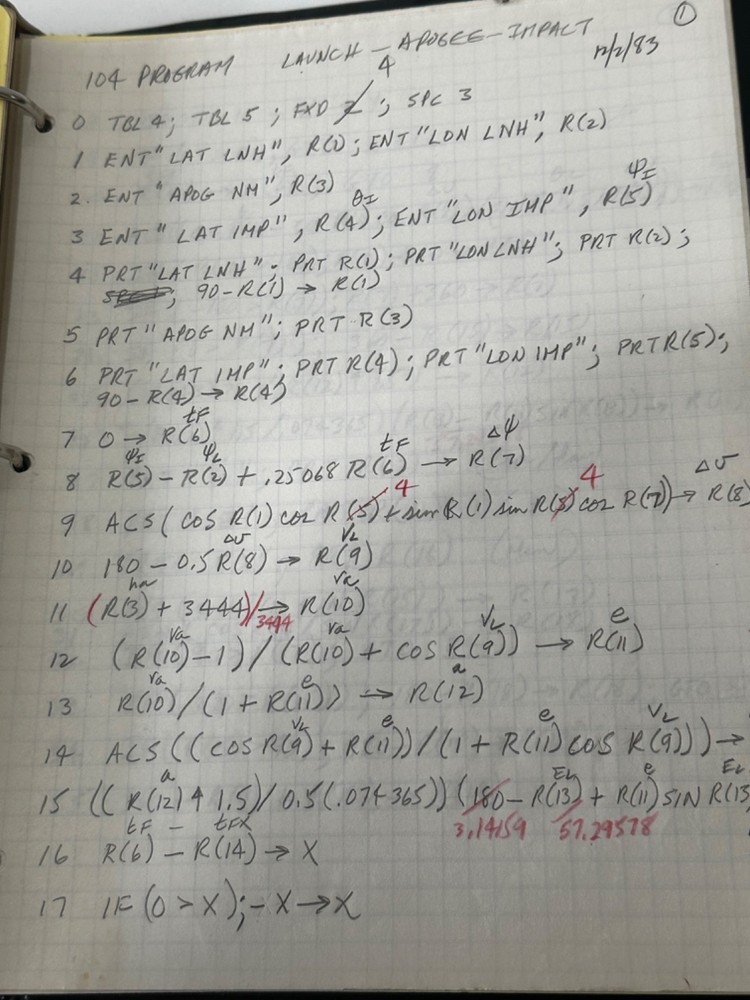 ①
104 PROGRAM LAUNCH – APOGEE – IMPACT 12/2/83
4
0 TBL 4; TBL 5; FXD 2; SPC 3
1 ENT "LAT LNH", R(1); ENT "LON LNH", R(2)
2. ENT "APOG NM", R(3)
θI ψI
3 ENT "LAT IMP", R(4); ENT "LON IMP", R(5)
4 PRT "LAT LNH"; PRT R(1); PRT "LON LNH"; PRT R(2);
; 90 – R(1) → R(1)
5 PRT "APOG NM"; PRT R(3)
6 PRT "LAT IMP"; PRT R(4); PRT "LON IMP"; PRT R(5);
90 – R(4) → R(4)
tF
7 0 → R(6)
ψI ψL tF Δψ
8 R(5) – R(2) + .25068 R(6) → R(7)
4 4 Δυ
9 ACS( COS R(1) COS R(5) + SIN R(1) SIN R(5) COS R(7)) → R(8)
Δυ VL
10 180 – 0.5 R(8) → R(9)
ha ra
11 (R(3) + 3444)/3444 → R(10)
ra ra VL e
12 (R(10) – 1) / (R(10) + COS R(9)) → R(11)
ra e a
13 R(10) / (1 + R(11)) → R(12)
VL e e VL
14 ACS((COS R(9) + R(11)) / (1 + R(11) COS R(9))) →
a EL e EL
15 ((R(12) ↑ 1.5) / 0.5(.074365)) (180 – R(13) + R(11) SIN R(13)
3.14159 57.29578
tF – tFX
16 R(6) – R(14) → X
17 IF (0 > X); –X → X